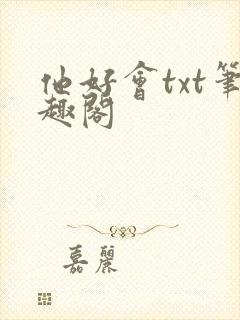 他好會txt筆
趣閣
嘉麗